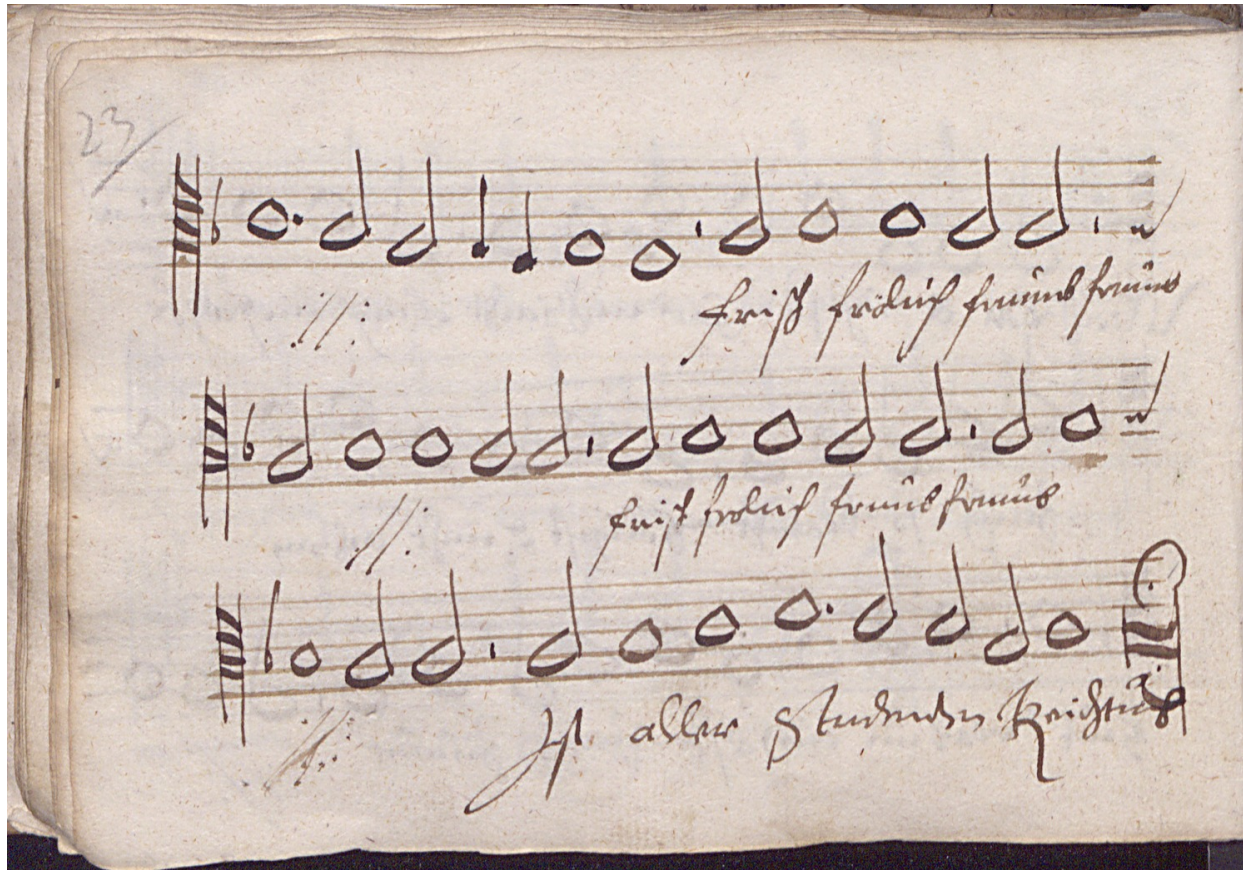 23
//: frisch frölich frumb frumb
//: frisch frölich frumb frumb
//: Ist aller Studenten Reichtumb